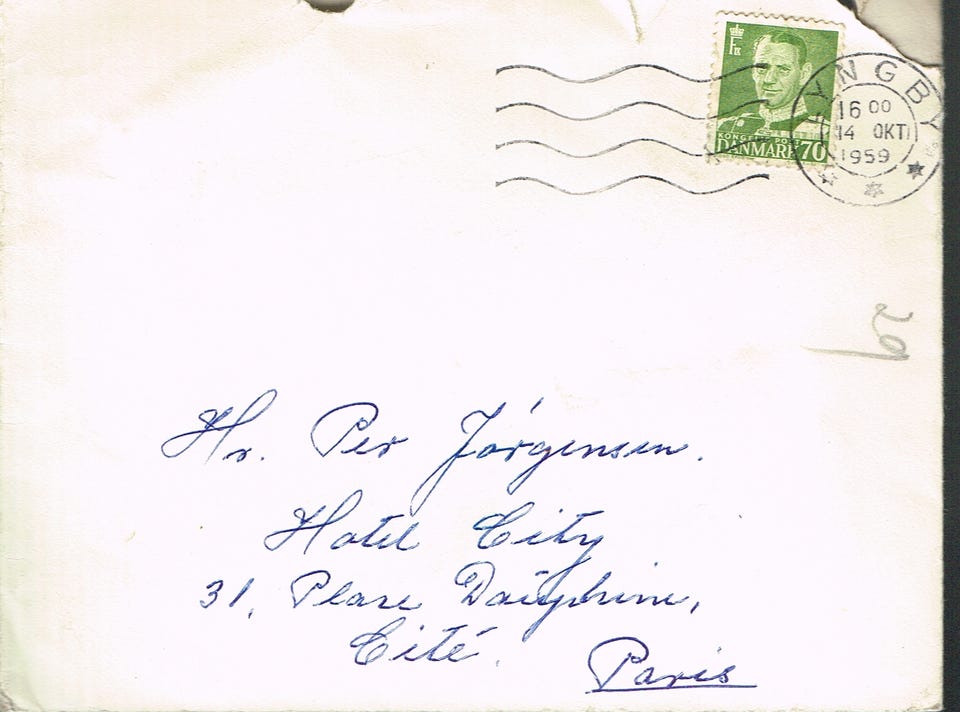 LYNGBY
16 00
14 OKT
1959
KONGEL. POST
DANMARK 70
29
Hr. Per Jórgensen.
Hotel City
31, Place Dauphine,
Cité. Paris